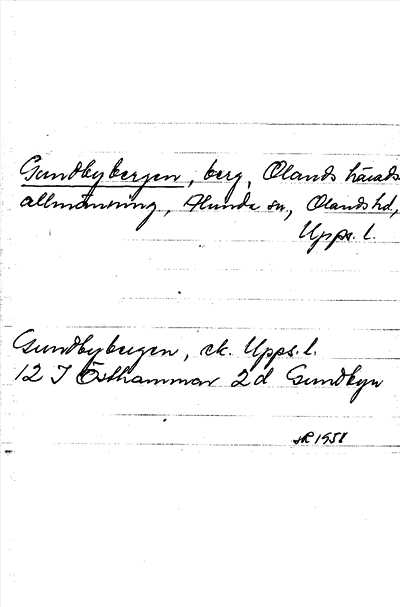 Gundbybergen, berg, Olands härads
allmänning, Alunda sn, Olands hd,
Upps. l.
Gundbybergen, ek. Upps. l.
12 I Östhammar 2d Gundbyn
1958